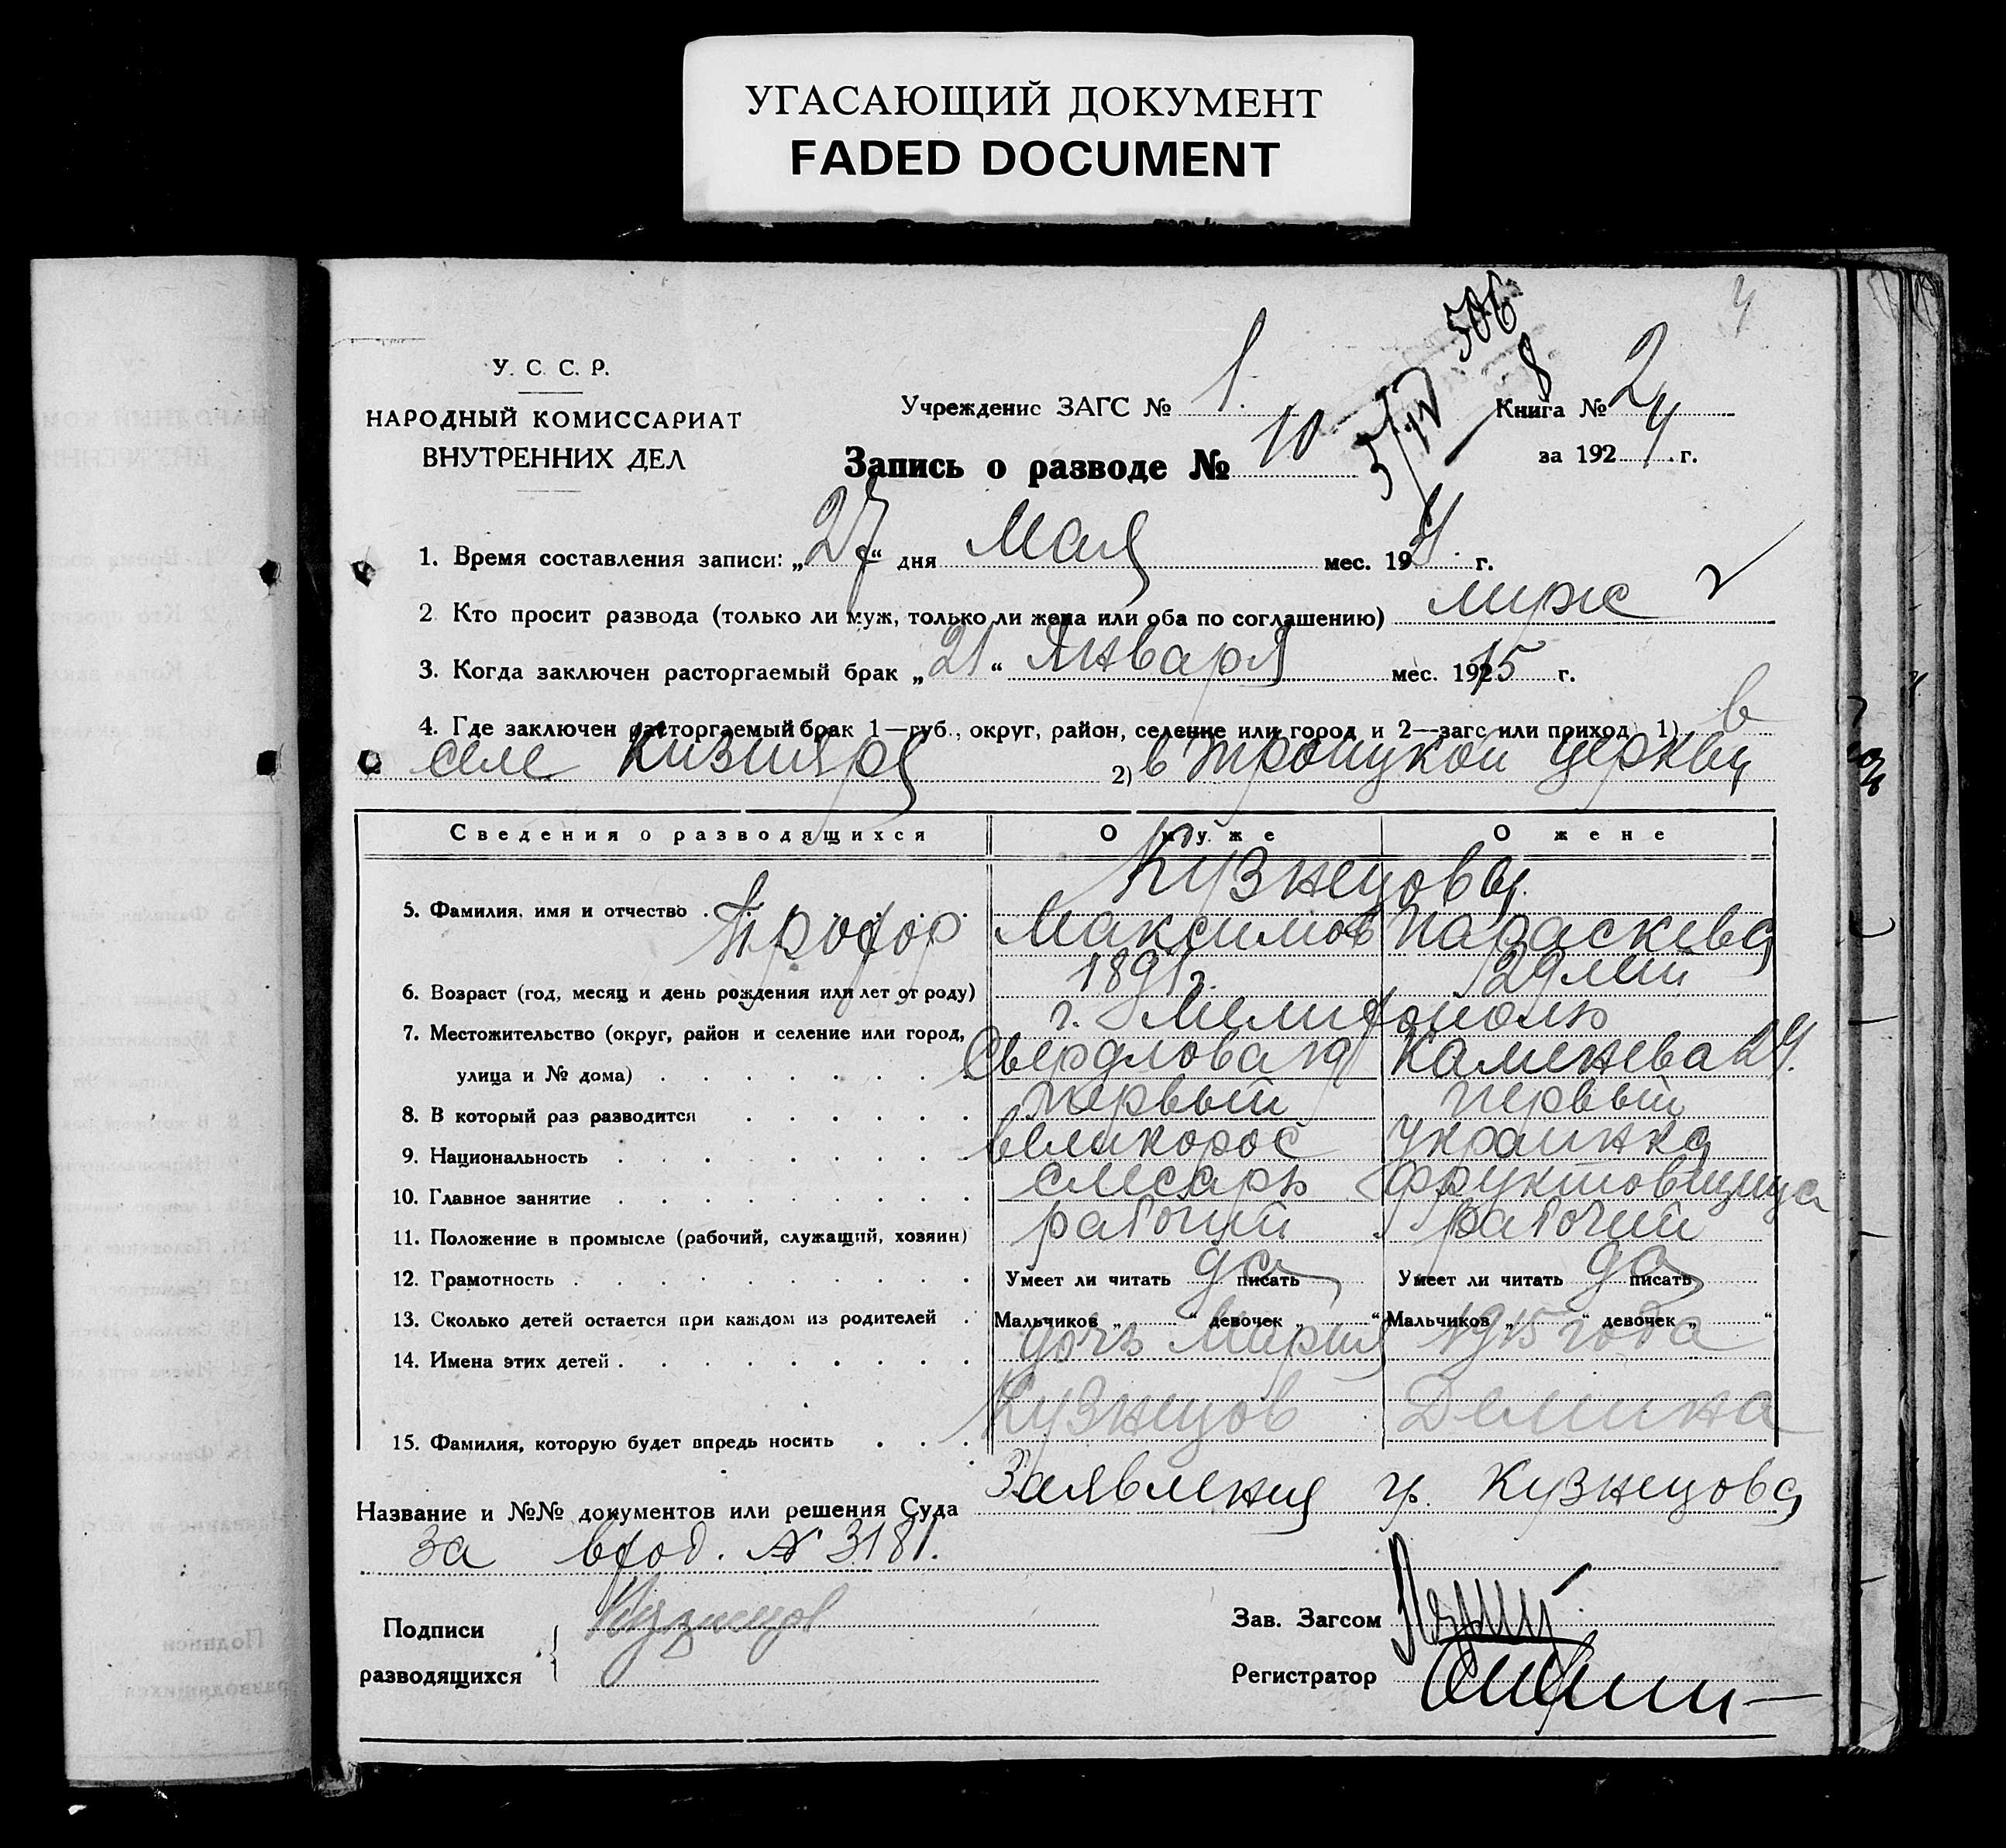 УГАСАЮЩИЙ ДОКУМЕНТ
FADED DOCUMENT
4
506
У. С. С. Р.
НАРОДНЫЙ КОМИССАРИАТ
ВНУТРЕННИХ ДЕЛ
Учреждение ЗАГС № 1.
Книга № 2
за 1924 г.
Запись о разводе № 10
1. Время составления записи: „27“ дня Мая мес. 194 г.
2. Кто просит развода (только ли муж, только ли жена или оба по соглашению) муж
3. Когда заключен расторгаемый брак „21“ Января мес. 1915 г.
4. Где заключен расторгаемый брак 1—губ., округ, район, селение или город и 2—загс или приход 1) в
селе Кизияре 2) в Троицкой церкви
Сведения о разводящихся О муже О жене
Кузнецовы.
5. Фамилия, имя и отчество Трофор Максимов Параскева
6. Возраст (год, месяц и день рождения или лет от роду) 1891 г. 29 лет
7. Местожительство (округ, район и селение или город, г. Мелитополь
улица и № дома) Свердлова 19 Каменева 24.
8. В который раз разводится первый первый
9. Национальность великорос украинка
10. Главное занятие слесарь фруктовщица
11. Положение в промысле (рабочий, служащий, хозяин) рабочий рабочий
12. Грамотность Умеет ли читать да писать Умеет ли читать да писать
13. Сколько детей остается при каждом из родителей Мальчиков „ “ девочек „ “ Мальчиков „ “ девочек „ “
14. Имена этих детей дочь Мария 1915 года
15. Фамилия, которую будет впредь носить Кузнецов Демина
Название и №№ документов или решения Суда Заявления гр. Кузнецова
за вход. № 3181.
Подписи Кузнецов
разводящихся
Зав. Загсом
Регистратор